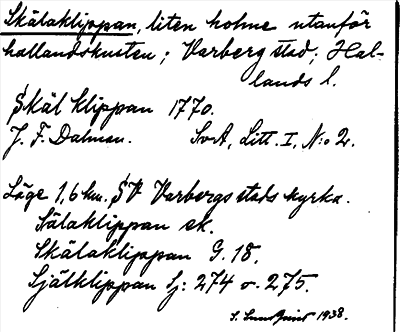 Skälaklippan, liten holme utanför
hallandskusten; Varberg stad; Hal-
lands l.
Skäl klippan 1770.
J. F. Dalman. SvA, Litt. I, N:o 2.
Läge 1,6 km. SV Varbergs stads kyrka.
Sälaklippan ek.
Skälaklippan G. 18.
Själklippan Sj: 274 o. 275.
S. 1938.